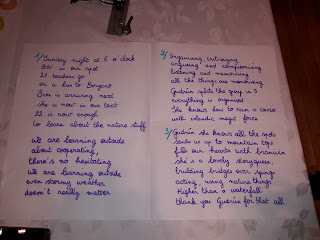 1/ Sunday night at 6 o'clock
Bar is our spot
21 teachers go
on a bus to Borgano
Tree is arriving next
she is now in our text
12 is now enough
to learn about the nature stuff
we are learning outside
about cooperating,
there's no hesitating
we are learning outside
even stormy weather
doesn't really matter
2/ Organising, criticising
arguing and compromising
listening and memorising
all the things are mesmerising
Guðrún splits the group in 5
everything is organised
She knows how to run a course
with islandic magic force
3/ Guðrún she knows all the rocks
sends us up to mountain tops
fills our hearts with
she's a lovely storyqueen,
building bridges over springs
acting, using nature things
Higher than a waterfall
thank you Guðrún for that all.